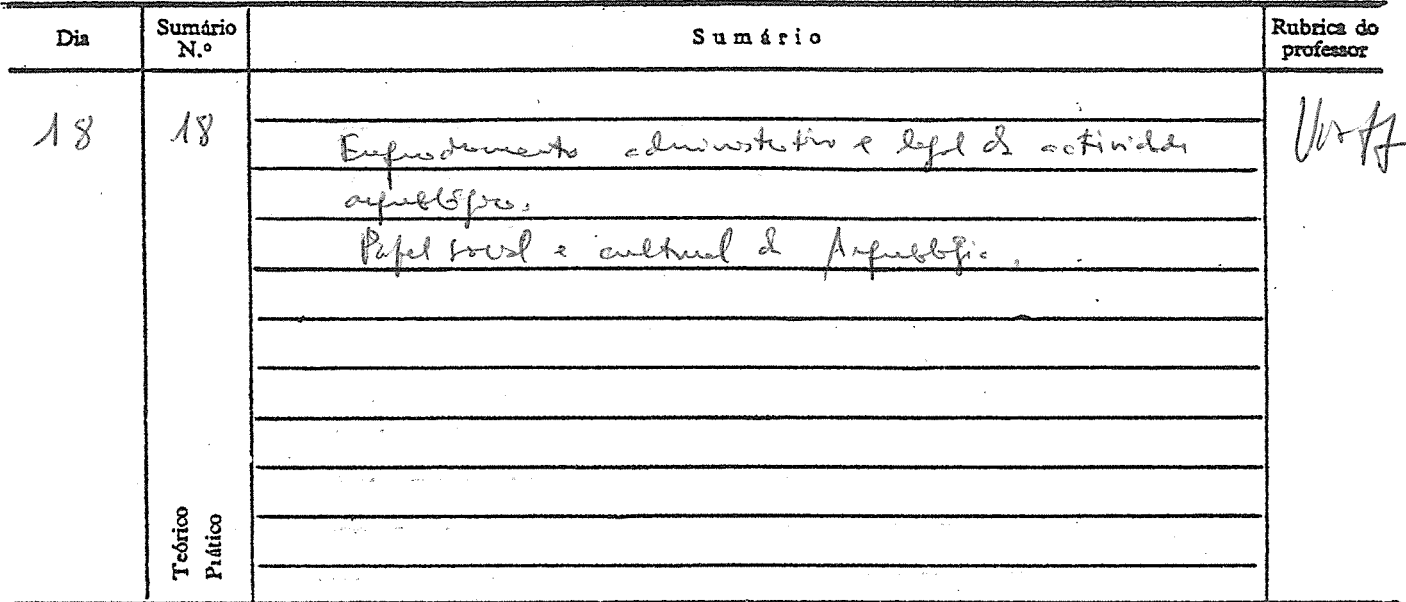 Dia Sumário N.º Sumário Rubrica do professor
18 18 Enquadramento administrativo e legal da actividade
arqueológica.
Papel social e cultural da Arqueologia.
Teórico
Prático